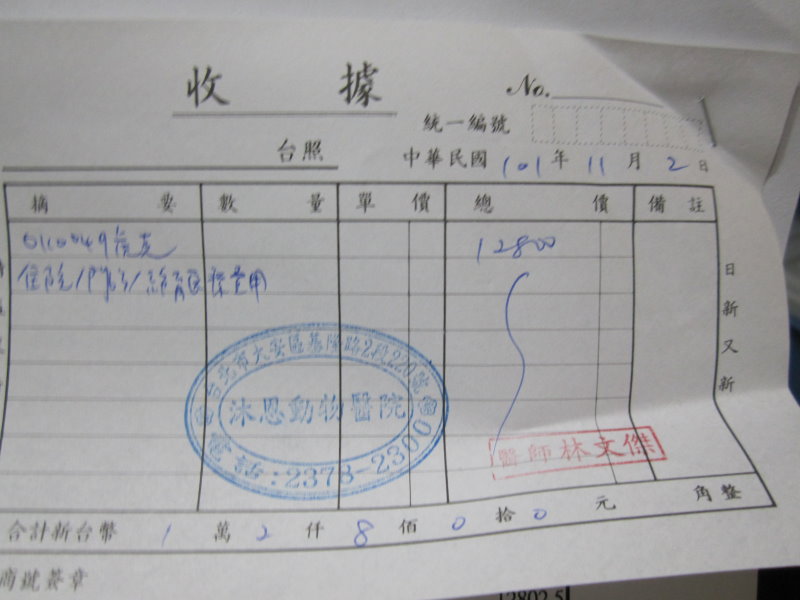 收 據
No.
統一編號
台照
中華民國 101 年 11 月 2 日
摘 要 數 量 單 價 總 價 備 註
12800
住院/門診/絕育醫療費用
台北市大安區基隆路2段220號
沐恩動物醫院
電話:2378-2300
醫師林文傑
日新又新
合計新台幣 1 萬 2 仟 8 佰 0 拾 0 元 角整
商號簽章
12802.5